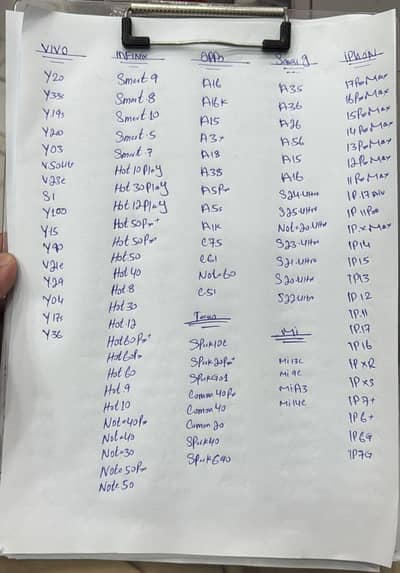 VIVO
Y20
Y33s
Y19s
Y200
Y03
V50lite
V23e
S1
Y100
Y15
Y90
V21e
Y29
Y04
Y17s
Y36
INFINIX
Smart 9
Smart 8
Smart 10
Smart 5
Smart 7
Hot 10 Play
Hot 30 Play
Hot 12 Play
Hot 50 Pro+
Hot 50 Pro
Hot 50
Hot 40
Hot 8
Hot 30
Hot 12
Hot 60 Pro+
Hot 60 Pro
Hot 60
Hot 9
Hot 10
Note 40 Pro
Note 40
Note 30
Note 50 Pro
Note 50
OPPO
A16
A16K
A15
A3x
A18
A38
A5 Pro
A5s
A1K
C75
C61
Note 60
C51
Tecno
Spark 10c
Spark 20 Pro+
Spark Go 1
Camon 40 Pro
Camon 40
Camon 20
Spark 40
Spark Go
A35
A36
A26
A56
A15
A16
S24 Ultra
S25 Ultra
Note 20 Ultra
S23 Ultra
S21 Ultra
S20 Ultra
S22 Ultra
Mi
Mi 13C
Mi 9C
Mi A3
Mi 14C
IPHON
17 Pro Max
16 Pro Max
15 Pro Max
14 Pro Max
13 Pro Max
12 Pro Max
11 Pro Max
IP.17 Air
IP 11 Pro
IP X Max
IP 14
IP 15
IP 13
IP 12
IP.11
IP.17
IP 16
IP XR
IP XS
IP 7+
IP 6+
IP 6G
IP 7G